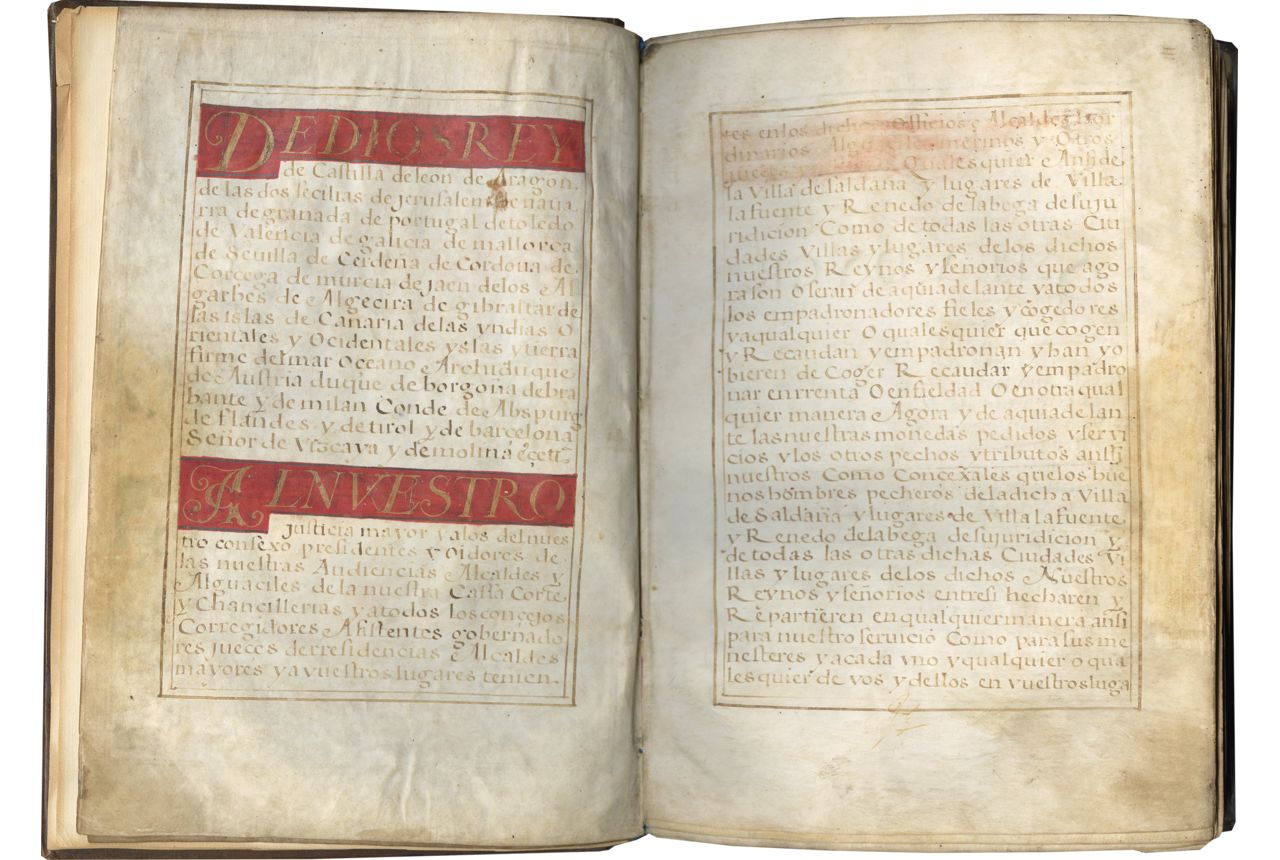 DE DIOS REY
de Castilla deleon de Aragon.
de las dos secilias de jerusalen denaua
rra de granada de portugal detoledo
de Valencia de galicia de mallorca
de Seuilla de Cerdeña de Cordoua de
Corcega de murcia de jaen delos Al
garbes de Algecira de gibraltar de
las islas de Canaria delas yndias O
rientales y Ocidentales yslas ytierra
firme del mar Oceano Archiduque
de Austria duque de borgoña debra
bante y de milan Conde de Abspurg
de flandes y de tirol y de barcelona
Señor de Vizcaya y demolina
AL NVESTRO
justicia mayor yalos delnues
tro consexo presidentes y Oidores de
las nuestras Audiencias Alcaldes y
Alguaciles de la nuestra Cassa Corte
y Chancillerias yatodos losconcejos
Corregidores Asistentes gobernado
res jueces derresidencias e Alcaldes
mayores yavuestroslugares tenien.
tes enlos dichos Officios e Alcaldes hor
dinarios merinos y Otros
Quales quier e Anside
la Villa desaldaña y lugares de Villa
lafuente y Renedo delabega desuju
ridicion Como de todas las otras Ciu
dades Villas ylugares delos dichos
nuestros Reynos yseñorios que ago
rason Oseran de aquiadelante yatodos
los empadronadores fieles y cogedores
yaqualquier O qualesquier que cogen
y Recaudan yempadronan yhan yo
bieren de Coger Recaudar yempadro
nar enrrenta Oenfieldad Oenotraqual
quier manera e Agora y de aquiadelan
te lasnuestras monedas pedidos yservi
cios ylos otros pechos ytributos ansi
nuestros Como Concexales quelos bue
nos hombres pecheros deladicha Villa
de Saldaña ylugares de Villa lafuente
y Renedo delabega desujuridicion y
de todas las otras dichas Ciudades Vi
llas y lugares delos dichos Nuestros
Reynos yseñorios entresi hecharen y
Repartieren en qualquiermanera ansi
para nuestro seruicio Como para sus me
nesteres yacada vno yqualquier o qua
lesquier de vos ydellos en vuestrosluga